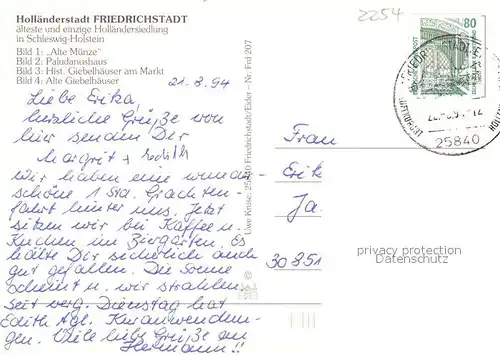 Holländerstadt FRIEDRICHSTADT
älteste und einzige Holländersiedlung
in Schleswig-Holstein
Bild 1: „Alte Münze"
Bild 2: Paludanushaus
Bild 3: Hist. Giebelhäuser am Markt
Bild 4: Alte Giebelhäuser
21.8.94
Liebe Erika,
herzliche Grüße von
hier senden Dir
Margrit + Edith
Wir haben eine wunder-
schöne 1 Std. Grachten-
fahrt hinter uns. Jetzt
sitzen wir bei Kaffee u.
Kuchen im Biergarten. Es
hätte Dir sicherlich auch
gut gefallen. Die Sonne
scheint u. wir strahlen.
Seit verg. Dienstag hat
Edith tgl. Kuranwendun-
gen. Viele liebe Grüße an
Hermann!!
Uwe Kruse: 25840 Friedrichstadt/Eider – Nr. Frd 207
2254
80
DEUTSCHE BUNDESPOST
25840
Frau
Erik
Ja.
30851
privacy protection
Datenschutz